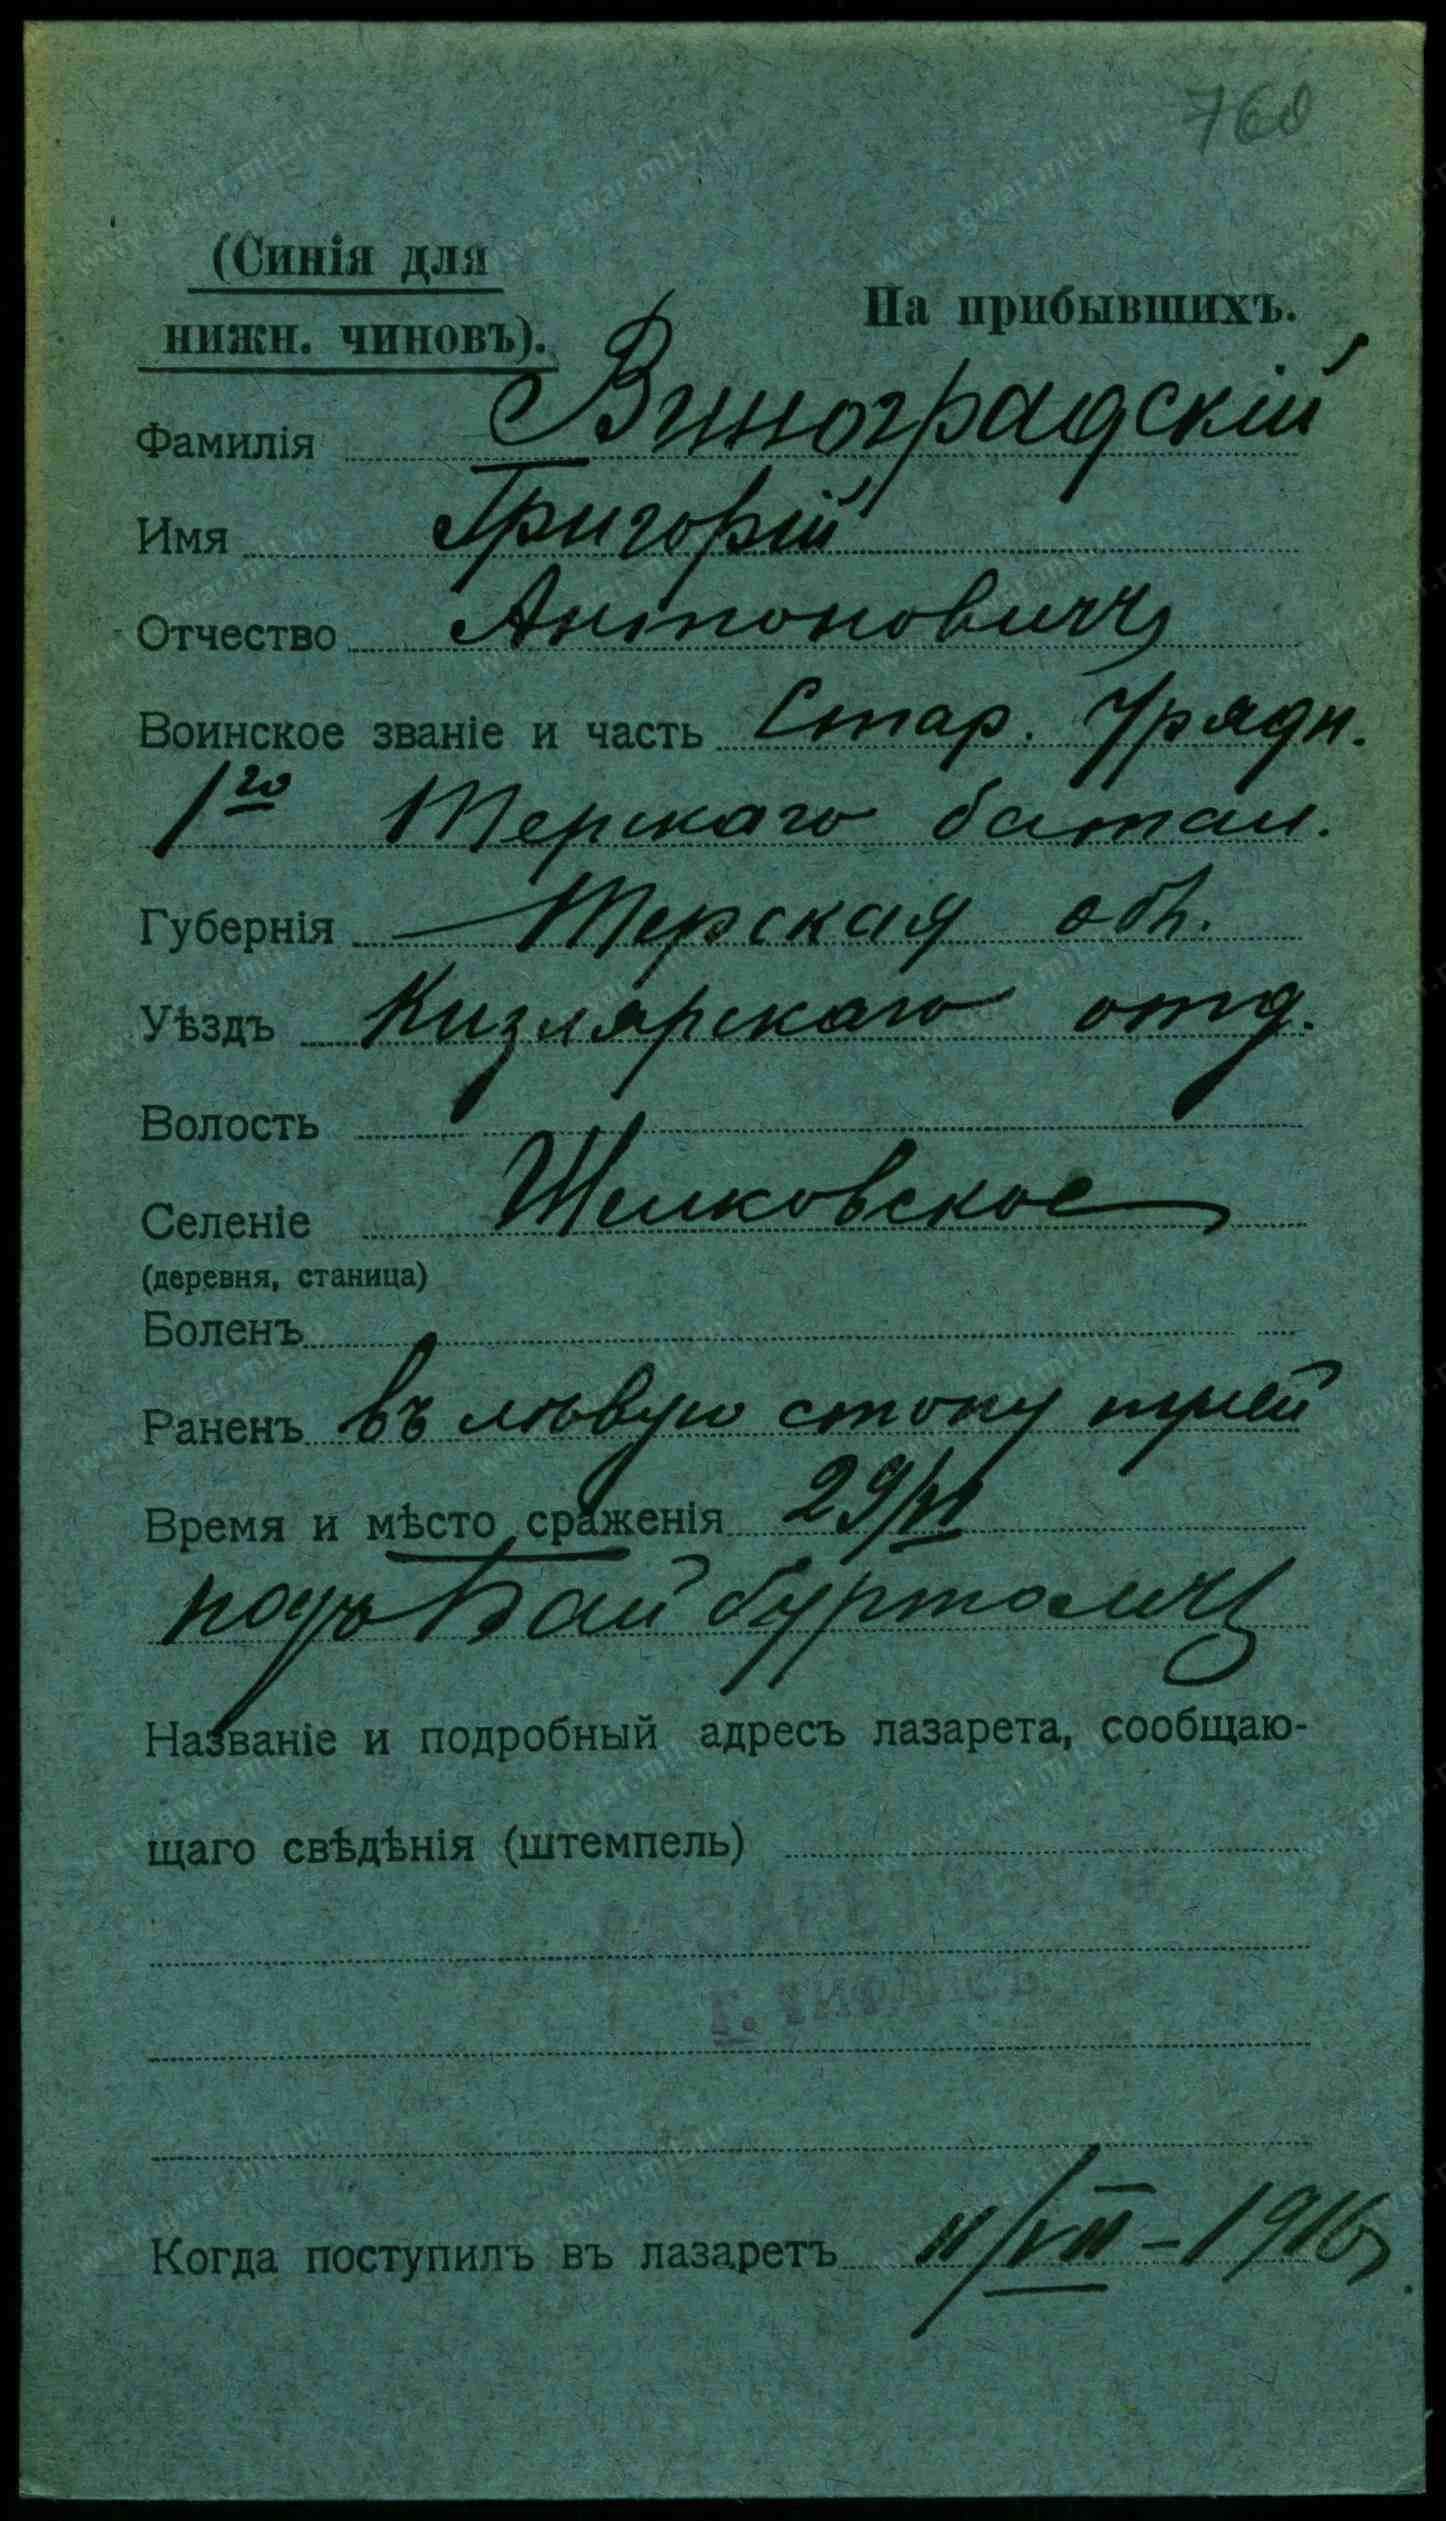 760
(Синія для
нижн. чиновъ).
На прибывшихъ.
Фамилія Виноградскій
Имя Григорій
Отчество Антоновичъ
Воинское званіе и часть Стар. Урядн.
1го Терскаго батал.
Губернія Терская обл.
Уѣздъ Кизлярскаго отд.
Волость
Селеніе Щелковское
(деревня, станица)
Боленъ
Раненъ въ лѣвую стопу пулей
Время и мѣсто сраженія 29/VI
подъ Байбуртомъ
Названіе и подробный адресъ лазарета, сообщаю-
щаго свѣдѣнія (штемпель)
г. Тифлисъ
Когда поступилъ въ лазаретъ 11/VII - 1916